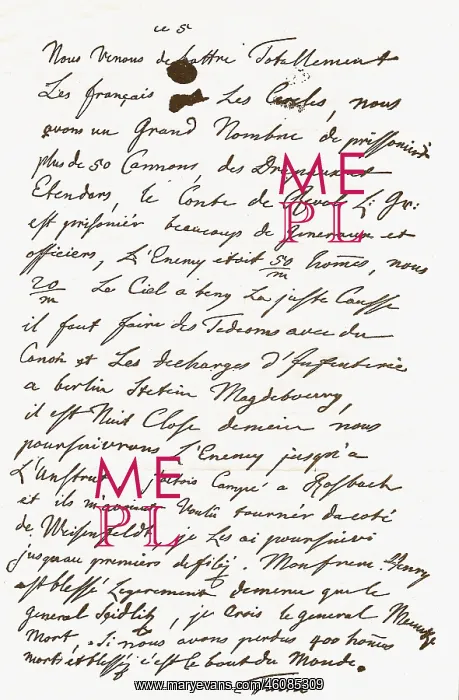 ce 5
Nous Venons de battre Totallement
Les français Les Cercles, nous
avons un Grand Nombre de prissoniers
plus de 50 Cannons, des Drapeaux et
Etenders, le Conte de Revel L: Gr:
est prisoniér beaucoup de Generaux et
officiers, L'Enemy etoit 50/m homes, nous
20/m La Ciel a beny La juste Cause
il faut faire des Tedeoms avec du
Canon et Les decharges d'Infanterie
a berlin Stetein Magdebourg,
il est Nuit Close demain nous
poursuivrons L'Enemy jusqu'a
L'Unstrut, j'etois Campé a Rosbach
et ils Voulu tournér da coté
de Weisenfeldt, je Les ai poursuivi
jusqu'au premiers defilé. Mon frere Henry
est blessé Legerement dememe que le
general Seidlitz, je Crois le general
Mort, Si nous avons perdus 400 homes
morts et blessé c'est le bout du Monde.
ME
PL
ME
PL
www.maryevans.com/46085309